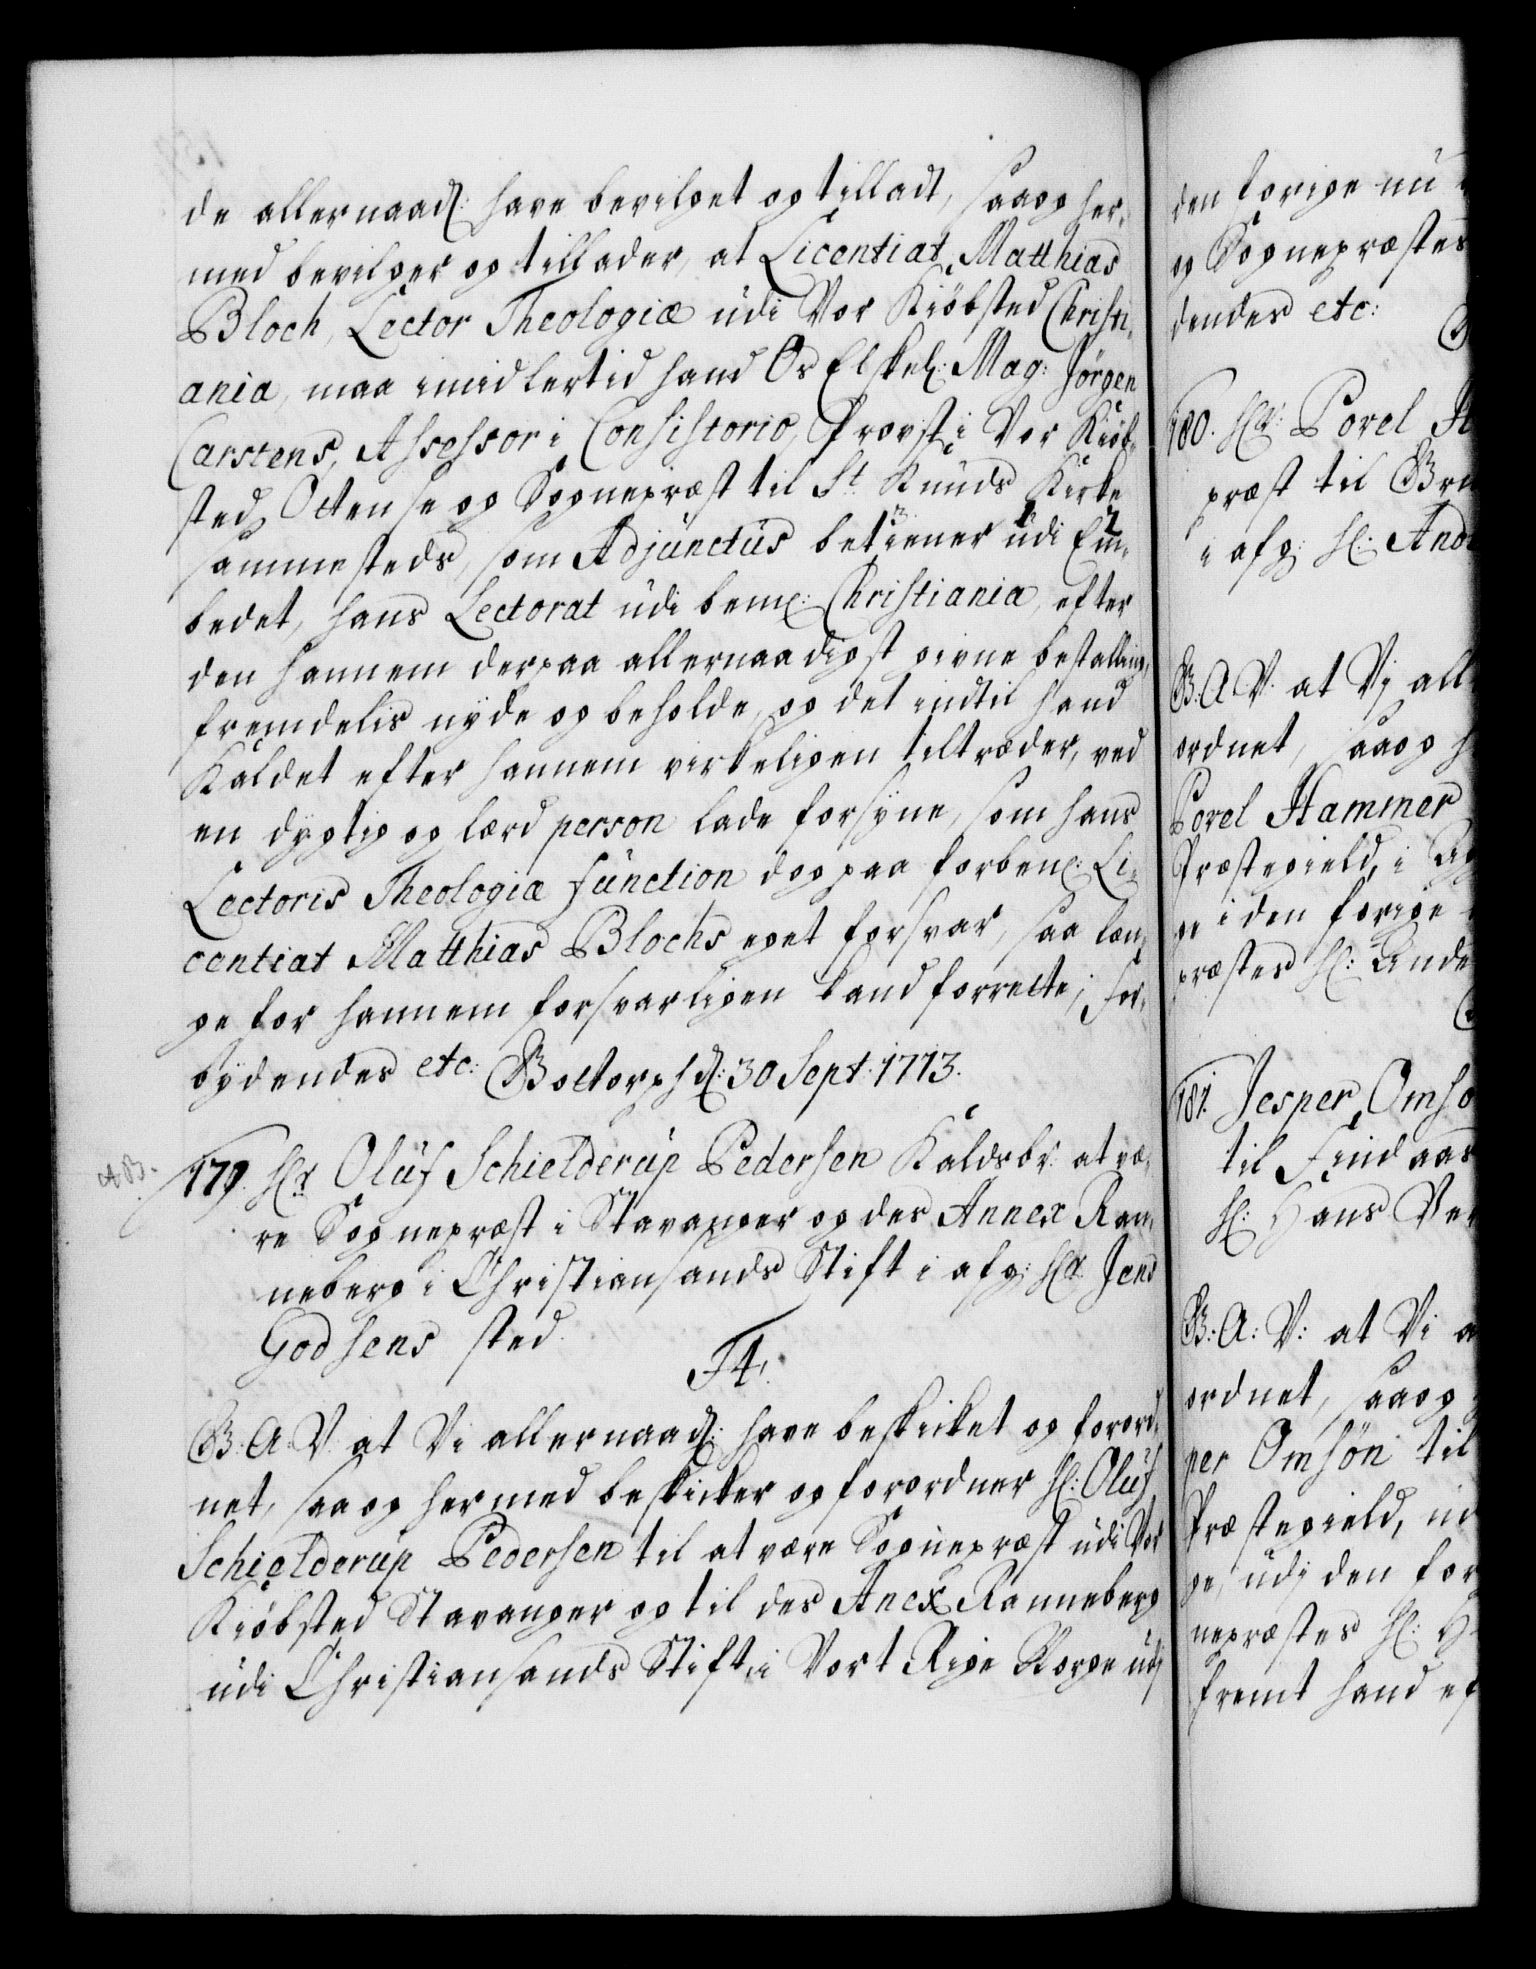 de allernaad: have bevilget og tilladt, saa og her-
med bevilger og tillader, at Licentiat Matthias
Bloch, Lector Theologiæ udi Vor Kiøbsted Christi-
ania, maa imidlertid hand Os Elskel: Mag: Jörgen
Carstens, Assessor i Consistorio, Provst i Vor Kiöb-
sted Ottense og Sognepræst til St. Knuds Kirke
sammesteds, som Adjunctus betiener udi Em-
bedet, hans Lectorat udi bem: Christiania, efter
den hannem derpaa allernaadigst givne bestalling,
fremdelis nyde og beholde, og det indtil hand
Kaldet efter hannem virkeligen tiltræder, ved
en dygtig og lærd person lade forsyne, som hans
Lectoris Theologiæ function dog paa forben: Li-
centiat Matthias Blochs eget forsvar, saa læn-
ge for hannem forsvarligen kand forrette; For-
bydendes etc: Gottorph d: 30 Sept: 1713.
A.B.
179. Hr. Oluf Schielderup Pedersen Kaldsbr: at væ-
re Sognepræst i Stavanger og des Annex Ran-
neberg i Christiansands Stift i afg: Hr. Jens
Godsens sted.
F4.
G. A. V. at Vi allernaad: have beskicket og forord-
net, saa og hermed beskicker og forordner Hr: Oluf
Schielderup Pedersen til at være Sognepræst udi Vor
Kiöbsted Stavanger og til des Anex Ranneberg
udi Christiansands Stift, i Vort Rige Norge udj
den forige nu
og Sognepræstes
dendes etc:
180. Hr: Povel H
præst til
i afg: Hr: And
G. A. V. at Vj all
ordnet, saa og h
Povel Hammer
Præstegield, i
ge i den forige
præstes Hr: Ande
181. Jesper Omsø
til Findaas
Hr: Hans Ver
G: A: V: at Vi a
ordnet, saa og
per Omsøn til
Præstegield, ud
ge, udj den for
nepræstes Hr: H
fremt hand ef